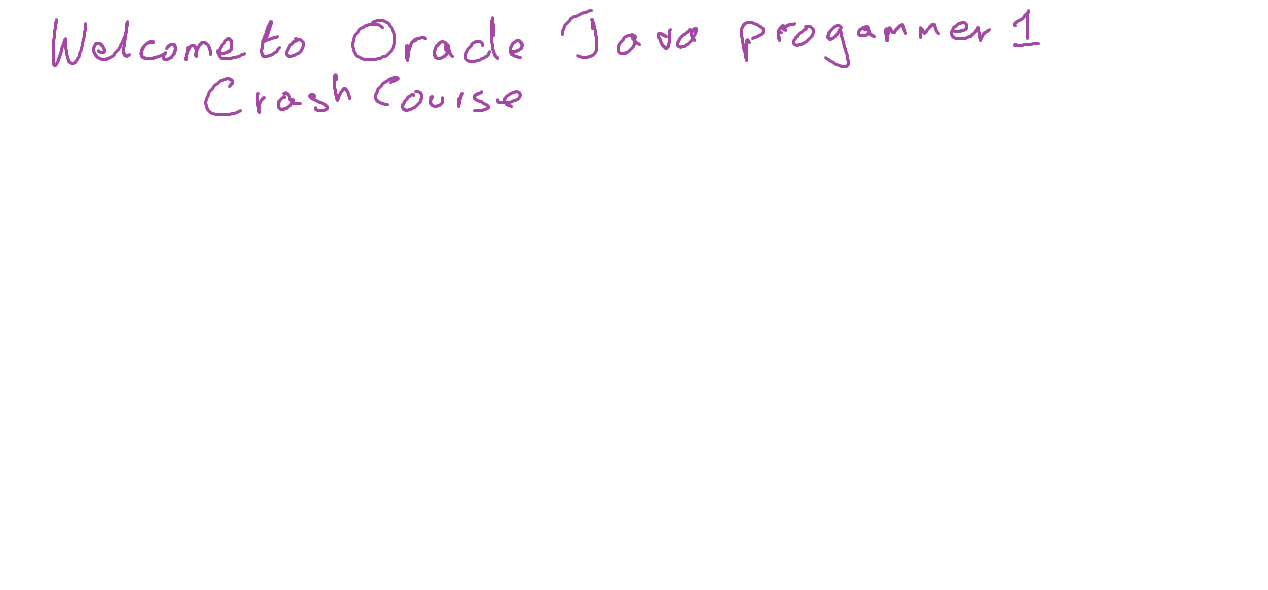 Welcome to Oracle Java progammer 1
Crash Course